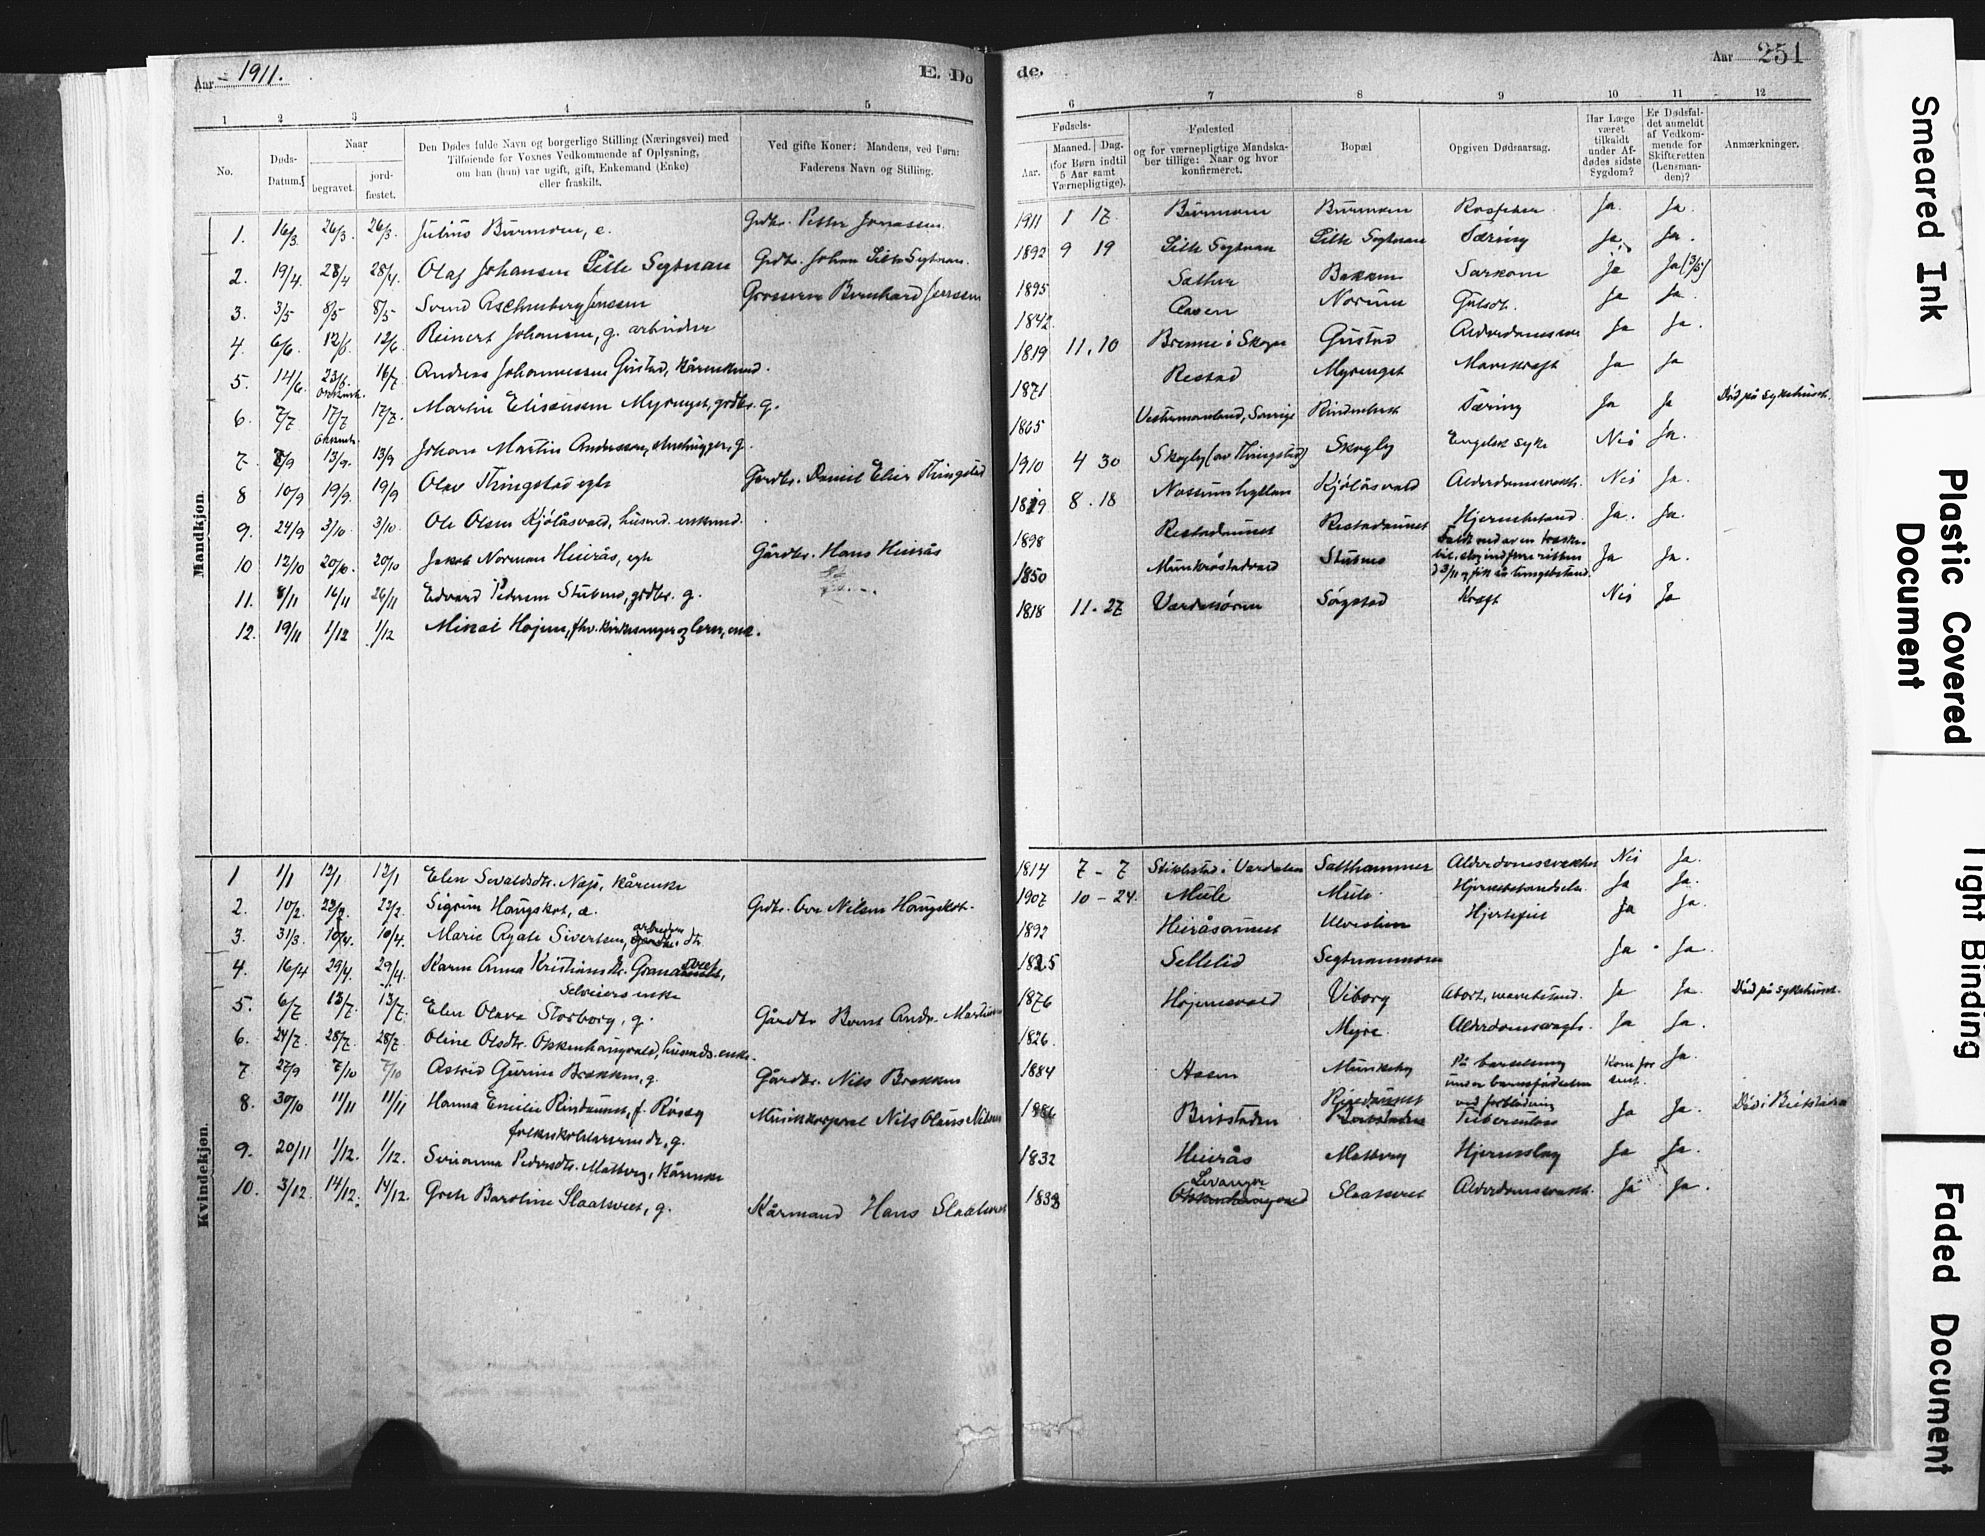 Aar 1911.
E. Dø
de.
Aar 251
1 2 3 4 5
6 7 8 9 10 11 12
No.
Døds-
Datum.
Naar
begravet.
jord-
fæstet.
Den Dødes fulde Navn og borgerlige Stilling (Næringsvei) med
Tilføiende for Voxnes Vedkommende af Oplysning,
om han (hun) var ugift, gift, Enkemand (Enke)
eller fraskilt.
Ved gifte Koner: Mandens, ved Børn:
Faderens Navn og Stilling.
Fødsels-
Aar.
Maaned. Dag.
(for Børn indtil
5 Aar samt
Værnepligtige).
Fødested
og for værnepligtige Mandska-
ber tillige: Naar og hvor
konfirmeret.
Bopæl
Opgiven Dødsaarsag.
Har Læge
været
tilkaldt
under Af-
dødes sidste
Sygdom?
Er Dødsfal-
det anmeldt
af Vedkom-
mende for
Skifteretten
(Lensman-
den)?
Anmærkninger.
Mandkjøn.
1. 16/3 26/3. 26/3. Julius e. Grdbr. Petter Jonassen 1911 1 17 Ja. Ja.
2. 19/4 28/4 28/4. Olaf Johansen Lille Segtnan Grdbr. Johan Lille Segtnan. 1892 9 19 Lille Segtnan Lille Segtnan Tæring Ja. Ja.
3. 3/5 8/5 8/5. Svend Aschenberg Jenssen Grosserer Bernhard Jenssen 1895 Bakken Sarkom Ja Ja (3/5)
4. 6/6. 12/6. 12/6. Reinert Johansen, g. arbeider 1842. Aasen Norum Gulsot. Ja Ja.
5. 14/6. 23/6. 16/7. Andreas Johannessen Gustad, kårenkmd. 1819 11. 10 Brenne i Skogn Gustad Ja Ja.
6. 7/7 17/7 17/7. Martin Eliseussen Myrenget, grdbr. g. 1871 Restad Myrenget Mavekræft Ja Ja
7. 8/9 13/9. 13/9 Johan Martin Andersson, stenhugger, g. 1865 Vestermanland, Sverige Tæring Ja Ja Død på sykehuset.
8 10/9 19/9. 19/9 Olav Thingstad egte Gårdbr. Daniel Elias Thingstad 1910 4 30 Skogby (av Thingstad) Skogby Engelsk syke Nei Ja.
9. 24/9 3/10. 3/10. Ole Olsen Kjølåsvald, husmd. enkemd. 1829 8. 18 Kjølåsvald Nei Ja.
10 12/10 20/10. 20/10 Jakob Norman Heirås, egte Gårdbr. Hans Heirås 1898 Restadaunet Restadaunet Hjernebetænd. Ja. Ja.
11. 8/11 16/11 26/11 Edvard Pedersen Stubmo, grdbr. g. 1850 Munkrøstadvald Stubmo Ja Ja.
12. 19/11 1/12 1/12 Mikal Højem, fhv. kirkesanger og lærer, enk. 1818 11. 27 Værdalsøren Sørgstad Kræft Nei Ja
Kvindekjøn.
1 1/1 12/1 12/1 Elen Sevaldsdtr. Næss, kårenke 1814 7 - 7 Stiklestad i Værdalen Salthammer Nei Ja.
2. 10/2. 22/2. 22/2. Sigrun Haugskot, æ. Grdbr. Ove Nilsen Haugskot. 1907 10 - 24. Mule Mule Ja Ja.
3. 31/3. 10/4. 10/4. Marie Agate Sivertsen, arbeider dtr. 1892 Heiråsaunet Ulvelien Hjertefeil Ja Ja.
4. 16/4 29/4. 29/4. Karen Anna Kristiansdtr. Grana
Selveiers enke 1825 Selletid Segtnanmoen Ja. Ja.
5. 6/7 13/7. 13/7. Elen Olava Storborg, g. Gårdbr Bernt Andr. Martinsen 1876 Højemsvald Viborg Abort, Ja Ja. Død på sykehuset.
6. 24/7. 28/7. 28/7. Oline Olsdtr. Okkenhaugvald, husmds. enke. 1826. Myre. Ja Ja.
7 27/9 7/10 7/10 Astrid Gurine Brækken, g. Gårdbr. Nils Brækken 1884 Aasen Munkeby På barselseng
under barnefødselen
ved forblødning Kom for
sent. Ja.
8. 30/10 11/11 11/11 Hanna Emilie Rindaunet, f. Røseg
folkeskolelærerinde, g. Musikkorporal Nils Olaus Nilsen Beitstaden Rindaunet Tuberkulose Ja Ja. Død i Beitstaden
9. 20/11 1/12. 1/12. Serianna Pedersdtr. Matberg, kårenke 1832 Heirås Matberg Hjerneslag Ja Ja.
10. 3/12. 14/12. 14/12. Grete Baroline Slaatsvet, g. Kårmand Hans Slaatsvet 1838 Levanger Okkenhaugvald Slaatsvet Ja Ja.
Smeared Ink
Plastic Covered
Document
Tight Binding
Faded Document